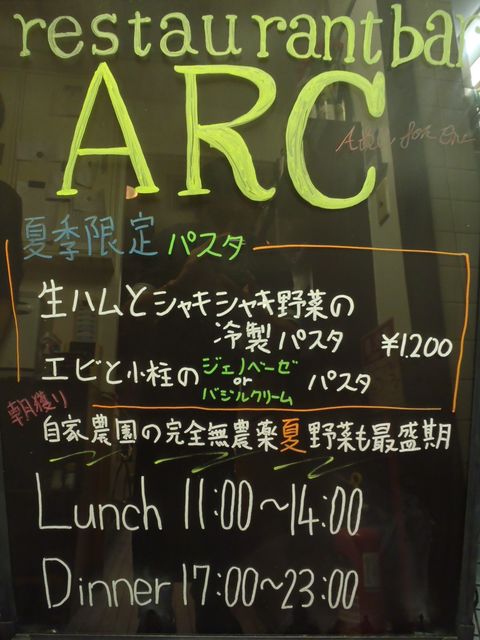 restaurant bar
ARC
for
夏季限定 パスタ
生ハムとシャキシャキ野菜の
冷製パスタ ¥1.200
エビと小柱の ジェノベーゼ or バジルクリーム パスタ
朝獲り
自家農園の完全無農薬夏野菜も最盛期
Lunch 11:00~14:00
Dinner 17:00~23:00